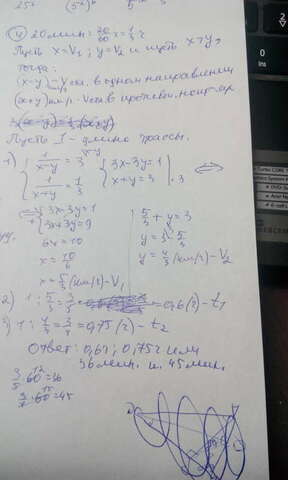 ④ 20 мин = 20/60 = 1/3 ч
Пусть x = V₁; y = V₂ и пусть x > y,
тогда:
(x-y) - Vсбл. в одном направлении
(x+y) км/ч - Vсбл в против. направ
Пусть 1 - длина трассы.
1) { 1/(x-y) = 3 { 3x-3y=1
{ 1/(x+y) = 1/3 { x+y=3 | ·3 <=>
3x-3y=1
3x+3y=9
6x=10
x = 10/6
x = 5/3 (км/ч) - V₁
5/3 + y = 3
y = 3 - 5/3
y = 4/3 (км/ч) - V₂
2) 1 : 5/3 = 3/5 = 0,6 (ч) - t₁
3) 1 : 4/3 = 3/4 = 0,75 (ч) - t₂
Ответ: 0,6ч; 0,75ч или
36 мин. и 45 мин.
3/5 · 60 = 36
3/4 · 60 = 45